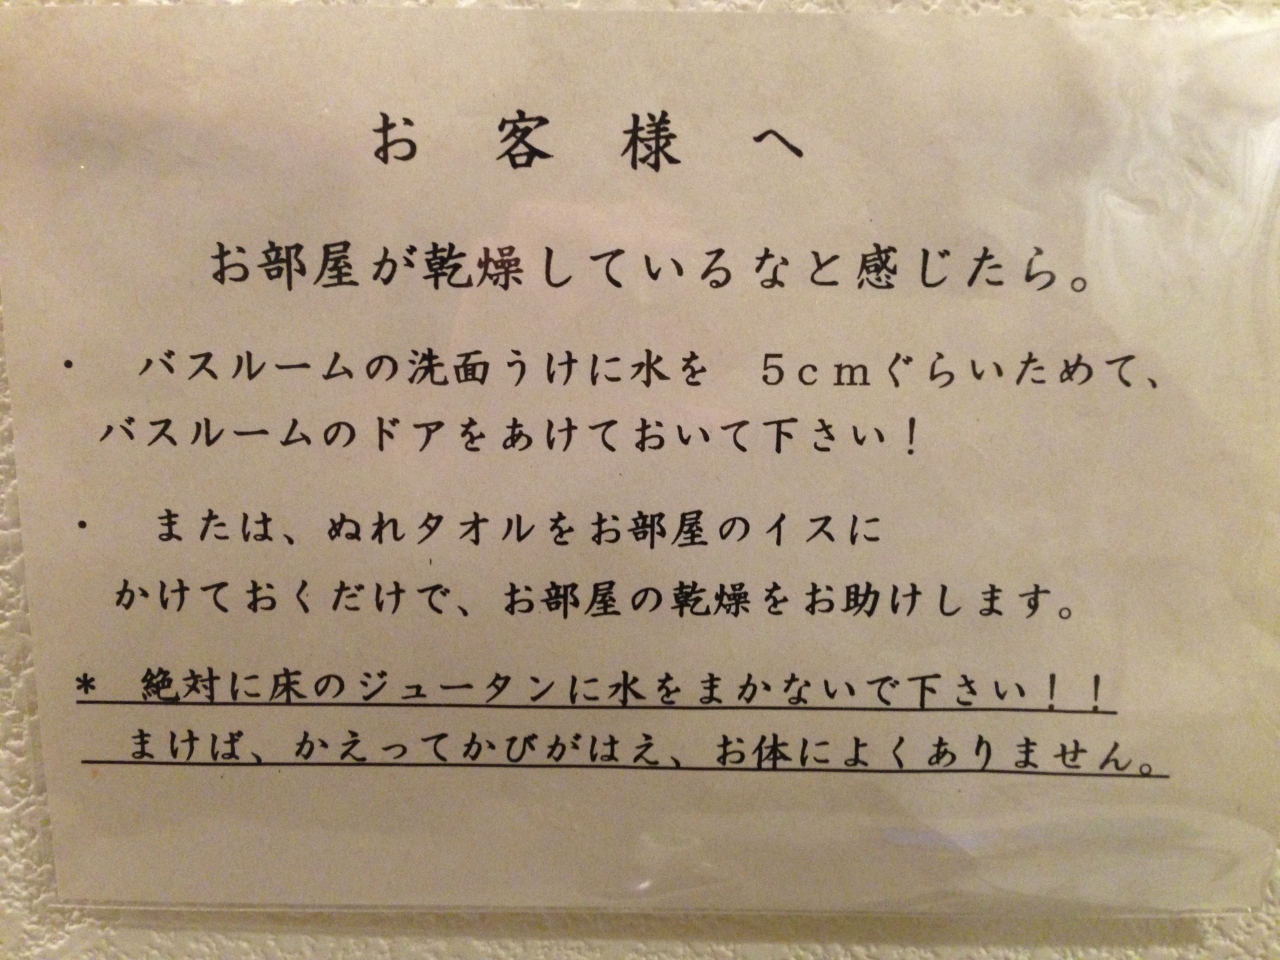 お 客 様 へ
お部屋が乾燥しているなと感じたら。
・ バスルームの洗面うけに水を 5cmぐらいためて、
バスルームのドアをあけておいて下さい!
・ または、ぬれタオルをお部屋のイスに
かけておくだけで、お部屋の乾燥をお助けします。
* 絶対に床のジュータンに水をまかないで下さい!!
まけば、かえってかびがはえ、お体によくありません。